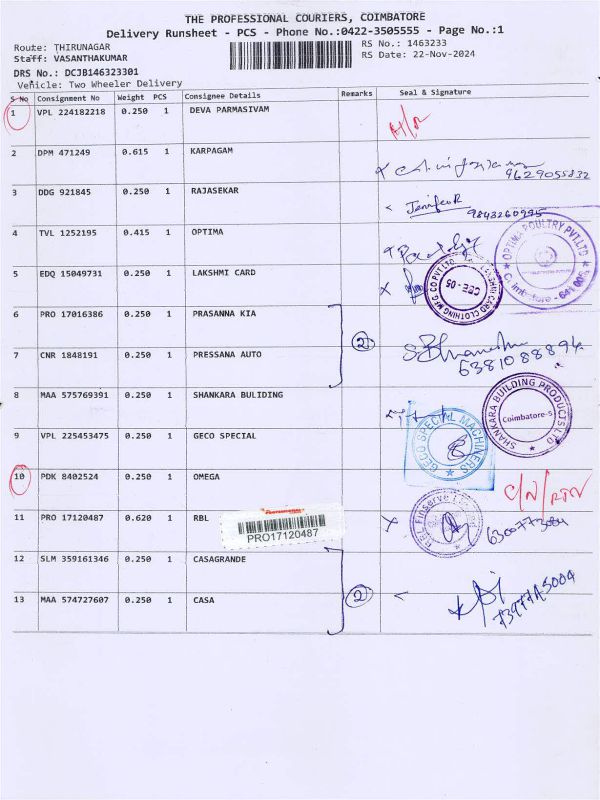 THE PROFESSIONAL COURIERS, COIMBATORE
Delivery Runsheet - PCS - Phone No.:0422-3505555 - Page No.:1
Route: THIRUNAGAR
RS No.: 1463233
Staff: VASANTHAKUMAR
RS Date: 22-Nov-2024
DRS No.: DCJB146323301
Vehicle: Two Wheeler Delivery
S No Consignment No Weight PCS Consignee Details Remarks Seal & Signature
1 VPL 224182218 0.250 1 DEVA PARMASIVAM
2 DPM 471249 0.615 1 KARPAGAM
9629055832
3 DDG 921845 0.250 1 RAJASEKAR
JenifeR
9843260995
4 TVL 1252195 0.415 1 OPTIMA
OPTIMA POULTRY PVT.LTD
Coimbatore - 641 006
5 EDQ 15049731 0.250 1 LAKSHMI CARD
LAKSHMI CARD CLOTHING MFG CO PVT LTD
CBE-05
6 PRO 17016386 0.250 1 PRASANNA KIA
2
7 CNR 1848191 0.250 1 PRESSANA AUTO
6381088894
8 MAA 575769391 0.250 1 SHANKARA BULIDING
SHANKARA BUILDING PRODUCTS LTD
Coimbatore-5
9 VPL 225453475 0.250 1 GECO SPECIAL
GECO SPECIAL MACHINERS
10 PDK 8402524 0.250 1 OMEGA
C/N/RTN
11 PRO 17120487 0.620 1 RBL
PRO17120487
RBL Finserve
12 SLM 359161346 0.250 1 CASAGRANDE
2
13 MAA 574727607 0.250 1 CASA